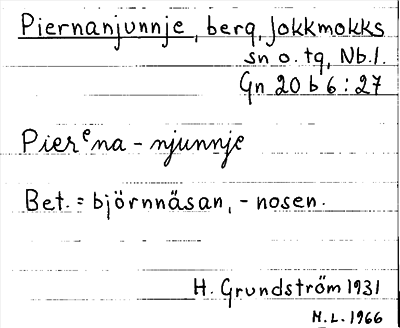 Piernanjunnje, berg, Jokkmokks
sn o. tg, Nb.l.
Gn 20 b 6 : 27
Pierᵉna - njunnje
Bet. = björnnäsan, - nosen.
H. Grundström 1931
H.L. 1966